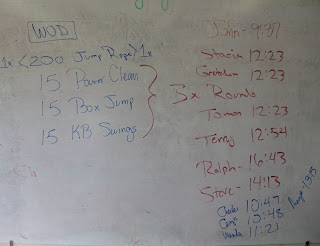 WOD
1x < 200 Jump Rope > 1x
15 Power Clean
15 Box Jump
15 KB Swings
3x Rounds
- 9:37
Stacia 12:23
12:23
Tomas 12:23
Terry 12:54
Ralph - 16:43
Steve - 14:13
10:47
10:48
11:21
13:15